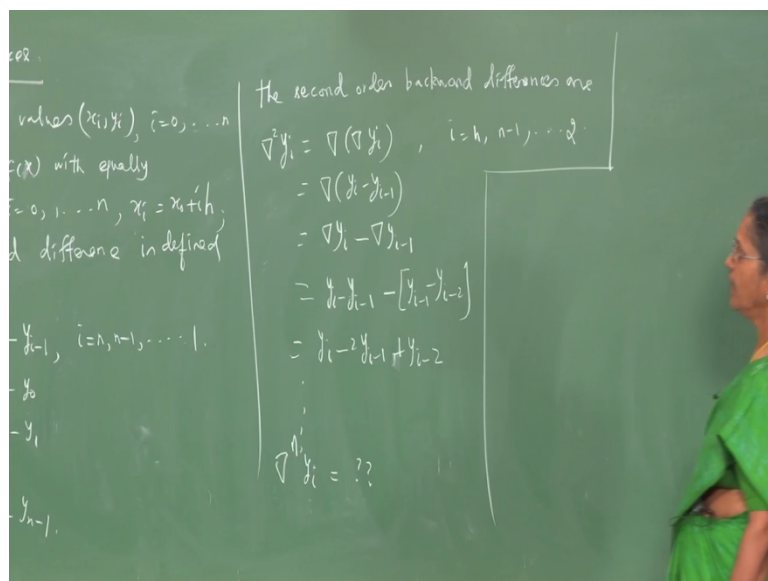 ces.
values (xᵢ, yᵢ), i=0, ... n
f(x) with equally
i=0, 1, ... n, xᵢ = x₀+ih,
d difference is defined
- yᵢ₋₁, i=n, n-1, ..... 1.
- y₀
- y₁
- yₙ₋₁.
the second order backward differences are
∇²yᵢ = ∇(∇yᵢ), i=n, n-1, ... 2.
= ∇(yᵢ-yᵢ₋₁)
= ∇yᵢ - ∇yᵢ₋₁
= yᵢ-yᵢ₋₁ - [yᵢ₋₁-yᵢ₋₂]
= yᵢ-2yᵢ₋₁+yᵢ₋₂
⋮
∇ⁿyᵢ = ??